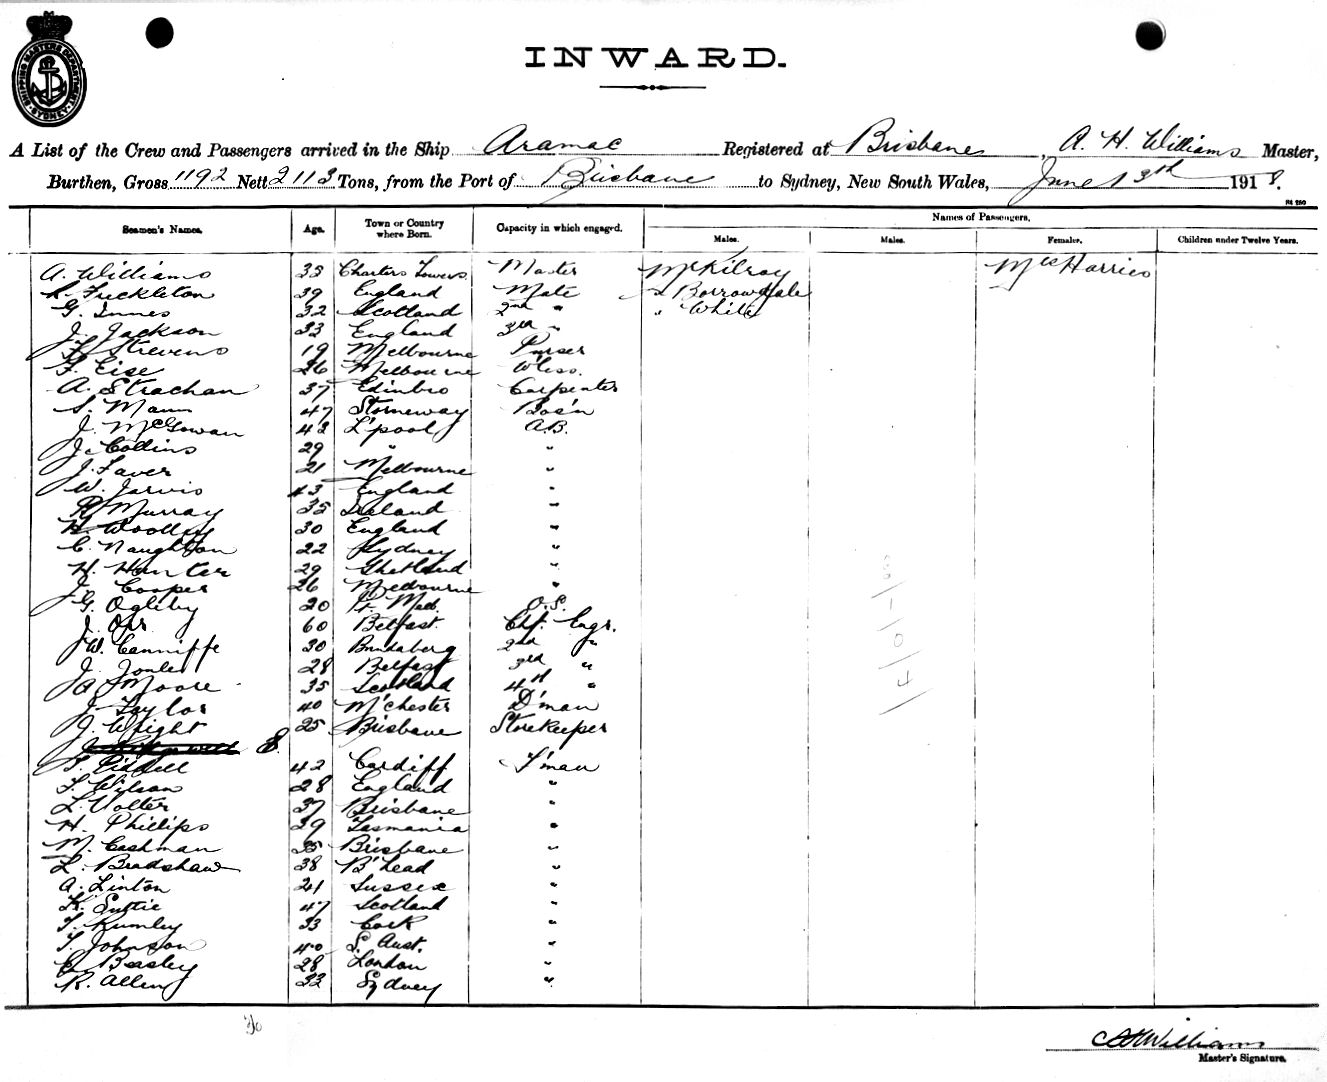 SHIPPING MASTERS DEPARTMENT
SYDNEY
INWARD.
A List of the Crew and Passengers arrived in the Ship Aramac Registered at Brisbane, A. H. Williams Master,
Burthen, Gross 1192 Nett 2113 Tons, from the Port of Brisbane to Sydney, New South Wales, June 13th 1918.
Seamen's Names. Age. Town or Country where Born. Capacity in which engaged. Names of Passengers.
Males. Males. Females. Children under Twelve Years.
A. Williams 35 Charters Towers Master McKilroy Mrs Harries
Fuckleton 39 England Mate " Borrowdale
G. Innes 32 Scotland 2nd " " White
J. Jackson 33 England 3rd "
F. Strevens 19 Melbourne Purser
F. Eise 26 Melbourne W'less.
A. Strachan 37 Edinbro Carpenter
S. Mann 47 Storneway Bos'n
J. McGowan 42 L'pool A.B.
J. Collins 29 " "
J. Faver 21 Melbourne "
W. Jarvis 43 England "
R. Murray 35 Ireland "
H. Woolley 30 England "
C. Naughton 22 Sydney "
H. Hunter 29 Shetland "
J. Cooper 26 Melbourne "
G. Ogleby 20 Pt. Melb. O.S.
J. Orr 60 Belfast. Chf. Engr.
W. Canniffe 30 Bundaberg 2nd "
J. 28 Belfast 3rd "
A. Moore 35 Scotland 4th "
J. Taylor 40 M'chester D'man
J. Wright 25 Brisbane Storekeeper
T. Piddell 42 Cardiff F'man
T. Wilson 28 England "
L. Volter 37 Brisbane "
H. Phillips 29 Tasmania "
M. Cashman 35 Brisbane "
L. Bradshaw 38 B'head "
A. Linton 21 Sussex "
K. Suttie 47 Scotland "
T. Rumley 33 Cork "
T. Johnson 40 S. Aust. "
E. Basley 28 London "
R. Allen 32 Sydney "
A H Williams
Master's Signature.